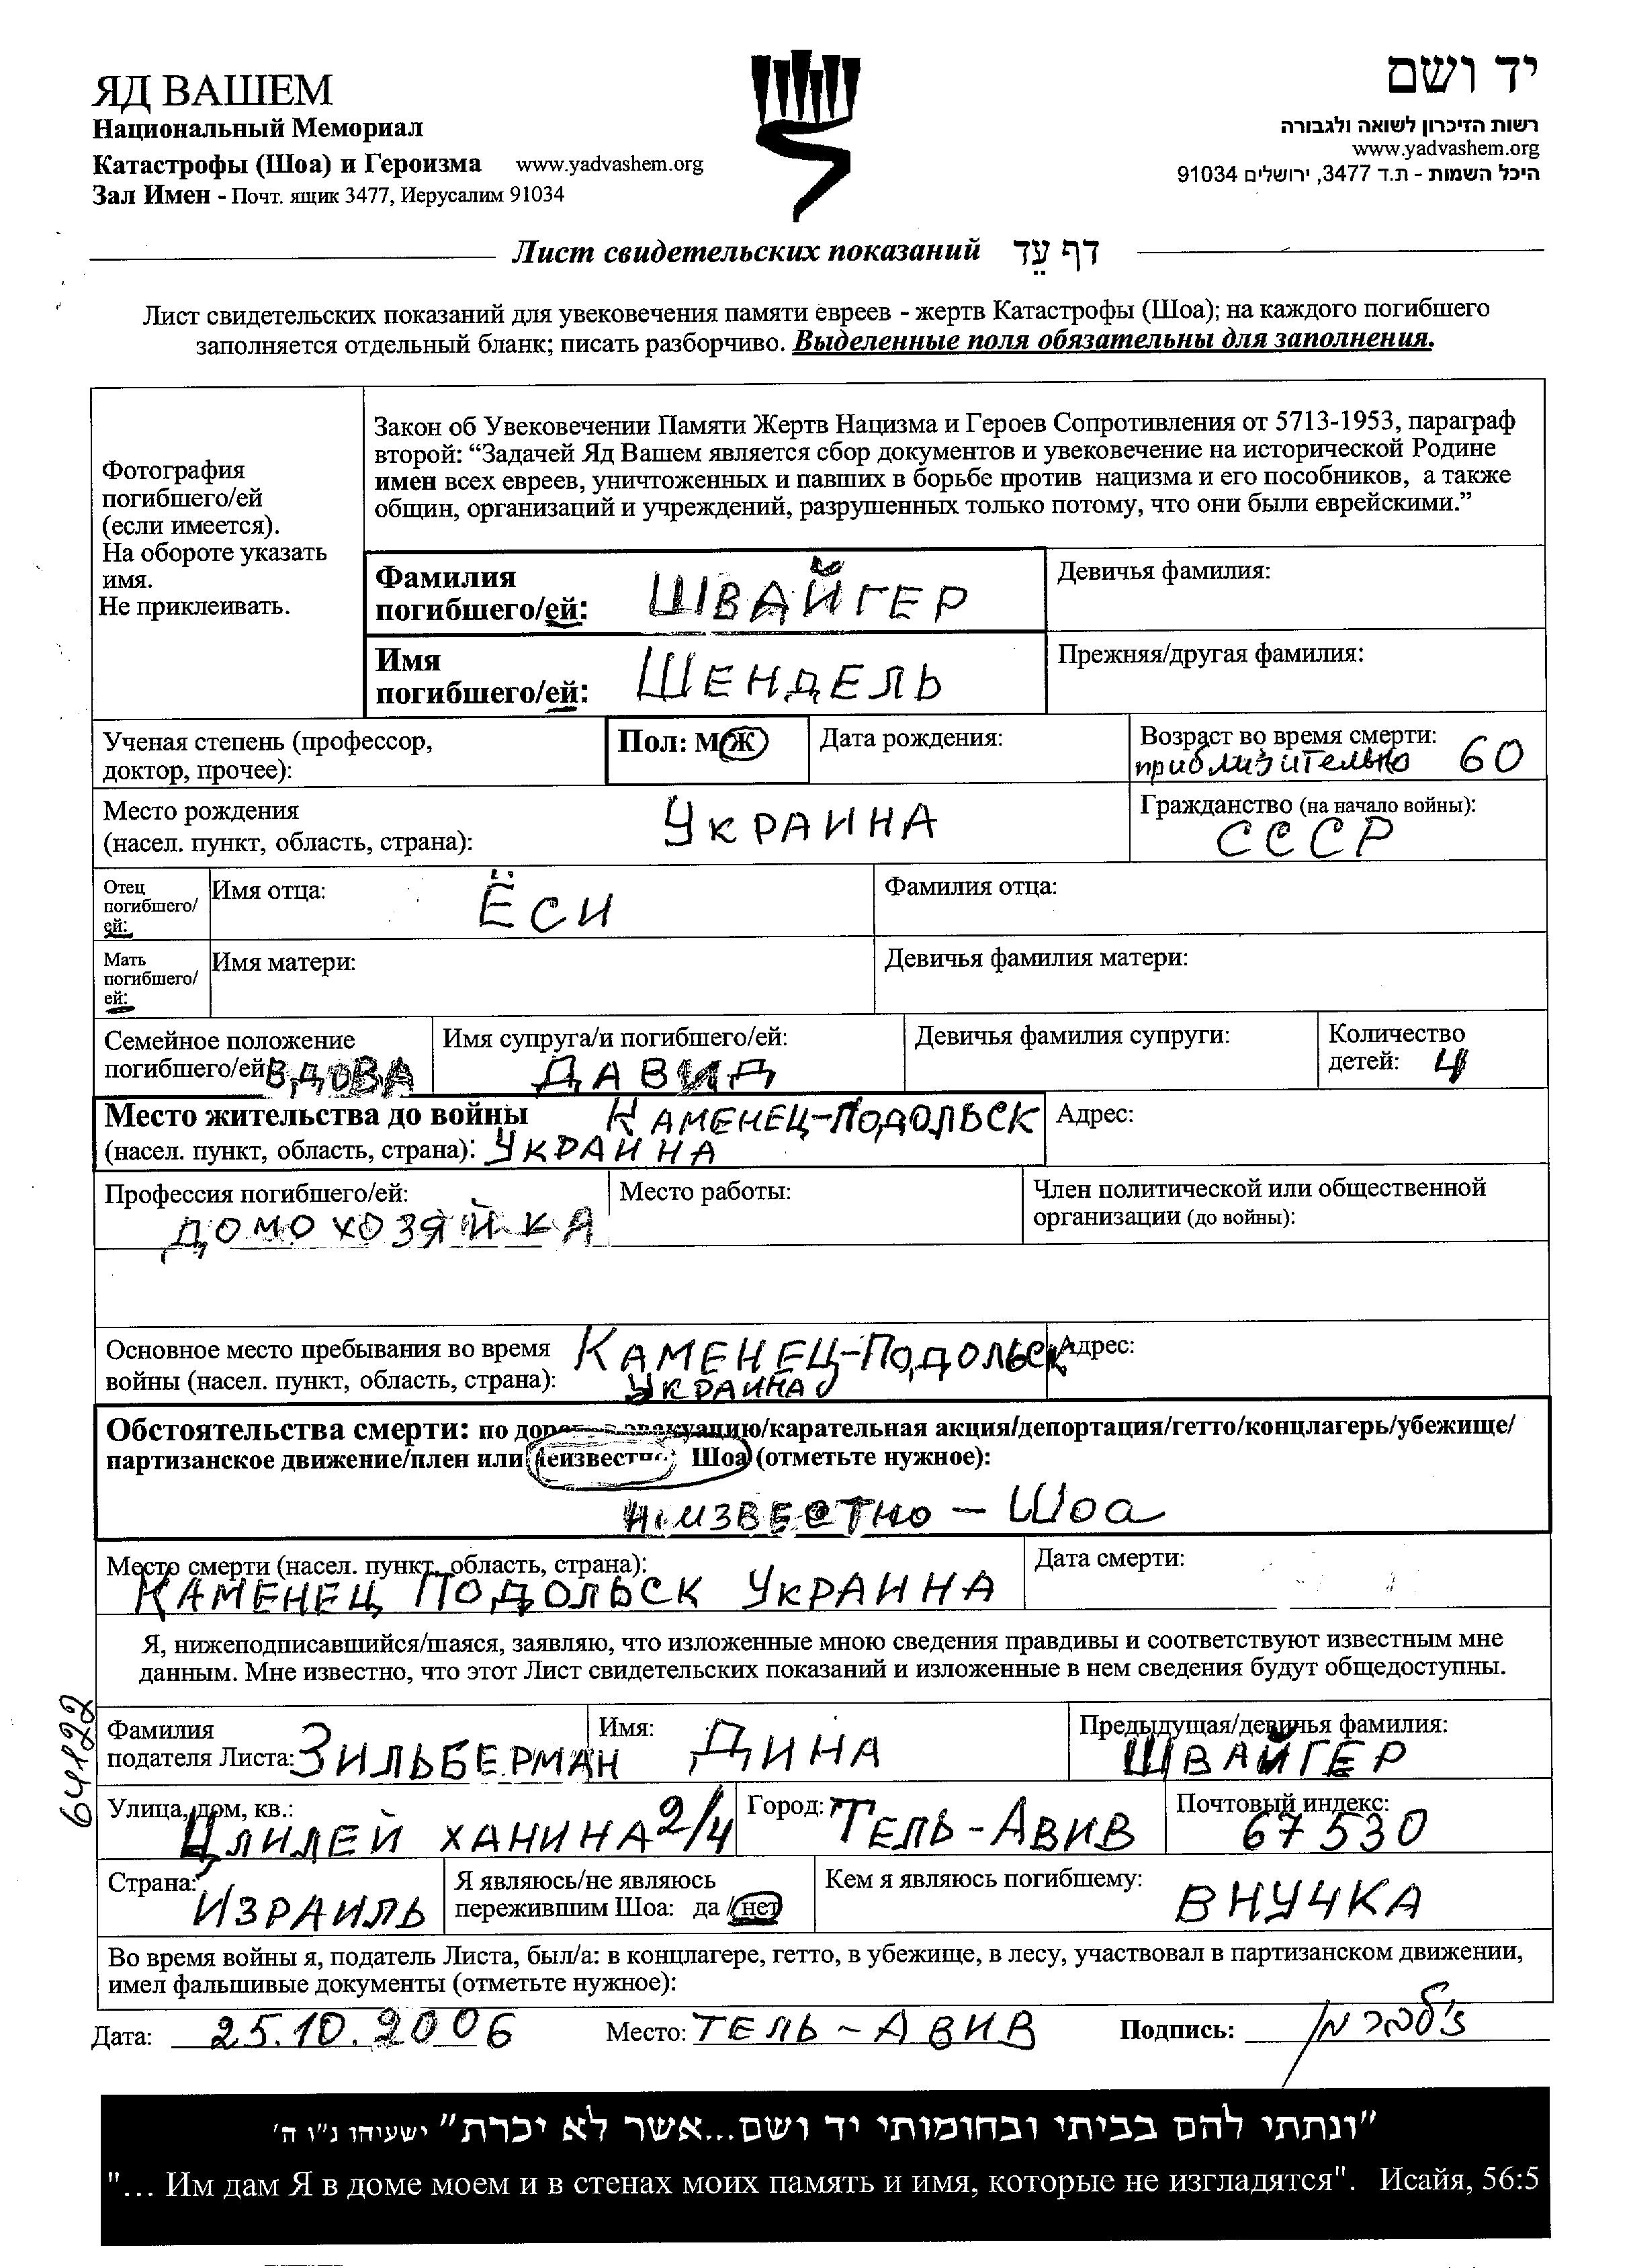 ЯД ВАШЕМ
Национальный Мемориал
Катастрофы (Шоа) и Героизма www.yadvashem.org
Зал Имен - Почт. ящик 3477, Иерусалим 91034
יד ושם
רשות הזיכרון לשואה ולגבורה
www.yadvashem.org
היכל השמות - ת.ד 3477, ירושלים 91034
Лист свидетельских показаний דף עֵד
Лист свидетельских показаний для увековечения памяти евреев - жертв Катастрофы (Шоа); на каждого погибшего
заполняется отдельный бланк; писать разборчиво. Выделенные поля обязательны для заполнения.
Фотография
погибшего/ей
(если имеется).
На обороте указать
имя.
Не приклеивать.
Закон об Увековечении Памяти Жертв Нацизма и Героев Сопротивления от 5713-1953, параграф
второй: “Задачей Яд Вашем является сбор документов и увековечение на исторической Родине
имен всех евреев, уничтоженных и павших в борьбе против нацизма и его пособников, а также
общин, организаций и учреждений, разрушенных только потому, что они были еврейскими.”
Фамилия
погибшего/ей: ШВАЙГЕР
Девичья фамилия:
Имя
погибшего/ей: ШЕНДЕЛЬ
Прежняя/другая фамилия:
Ученая степень (профессор,
доктор, прочее):
Пол: М/Ж
Дата рождения:
Возраст во время смерти:
приблизительно 60
Место рождения
(насел. пункт, область, страна): УКРАИНА
Гражданство (на начало войны):
СССР
Отец
погибшего/
ей:
Имя отца: ЁСИ
Фамилия отца:
Мать
погибшего/
ей:
Имя матери:
Девичья фамилия матери:
Семейное положение
погибшего/ей: ВДОВА
Имя супруга/и погибшего/ей:
ДАВИД
Девичья фамилия супруги:
Количество
детей: 4
Место жительства до войны КАМЕНЕЦ-ПОДОЛЬСК
(насел. пункт, область, страна): УКРАИНА
Адрес:
Профессия погибшего/ей:
ДОМОХОЗЯЙКА
Место работы:
Член политической или общественной
организации (до войны):
Основное место пребывания во время КАМЕНЕЦ-ПОДОЛЬСК
войны (насел. пункт, область, страна): УКРАИНА
Адрес:
Обстоятельства смерти: по дороге в эвакуацию/карательная акция/депортация/гетто/концлагерь/убежище/
партизанское движение/плен или неизвестно Шоа (отметьте нужное):
НЕИЗВЕСТНО - Шоа
Место смерти (насел. пункт, область, страна):
КАМЕНЕЦ ПОДОЛЬСК УКРАИНА
Дата смерти:
Я, нижеподписавшийся/шаяся, заявляю, что изложенные мною сведения правдивы и соответствуют известным мне
данным. Мне известно, что этот Лист свидетельских показаний и изложенные в нем сведения будут общедоступны.
64122
Фамилия
подателя Листа: ЗИЛЬБЕРМАН
Имя: ДИНА
Предыдущая/девичья фамилия:
ШВАЙГЕР
Улица, дом, кв.:
ЦЛИЛЕЙ ХАНИНА 2/4
Город: ТЕЛЬ-АВИВ
Почтовый индекс:
67530
Страна:
ИЗРАИЛЬ
Я являюсь/не являюсь
пережившим Шоа: да /нет
Кем я являюсь погибшему:
ВНУЧКА
Во время войны я, податель Листа, был/а: в концлагере, гетто, в убежище, в лесу, участвовал в партизанском движении,
имел фальшивые документы (отметьте нужное):
Дата: 25.10.2006 Место: ТЕЛЬ-АВИВ Подпись: זילברמן
"ונתתי להם בביתי ובחומותי יד ושם...אשר לא יכרת" ישעיהו נ"ו ה'
"... Им дам Я в доме моем и в стенах моих память и имя, которые не изгладятся". Исайя, 56:5